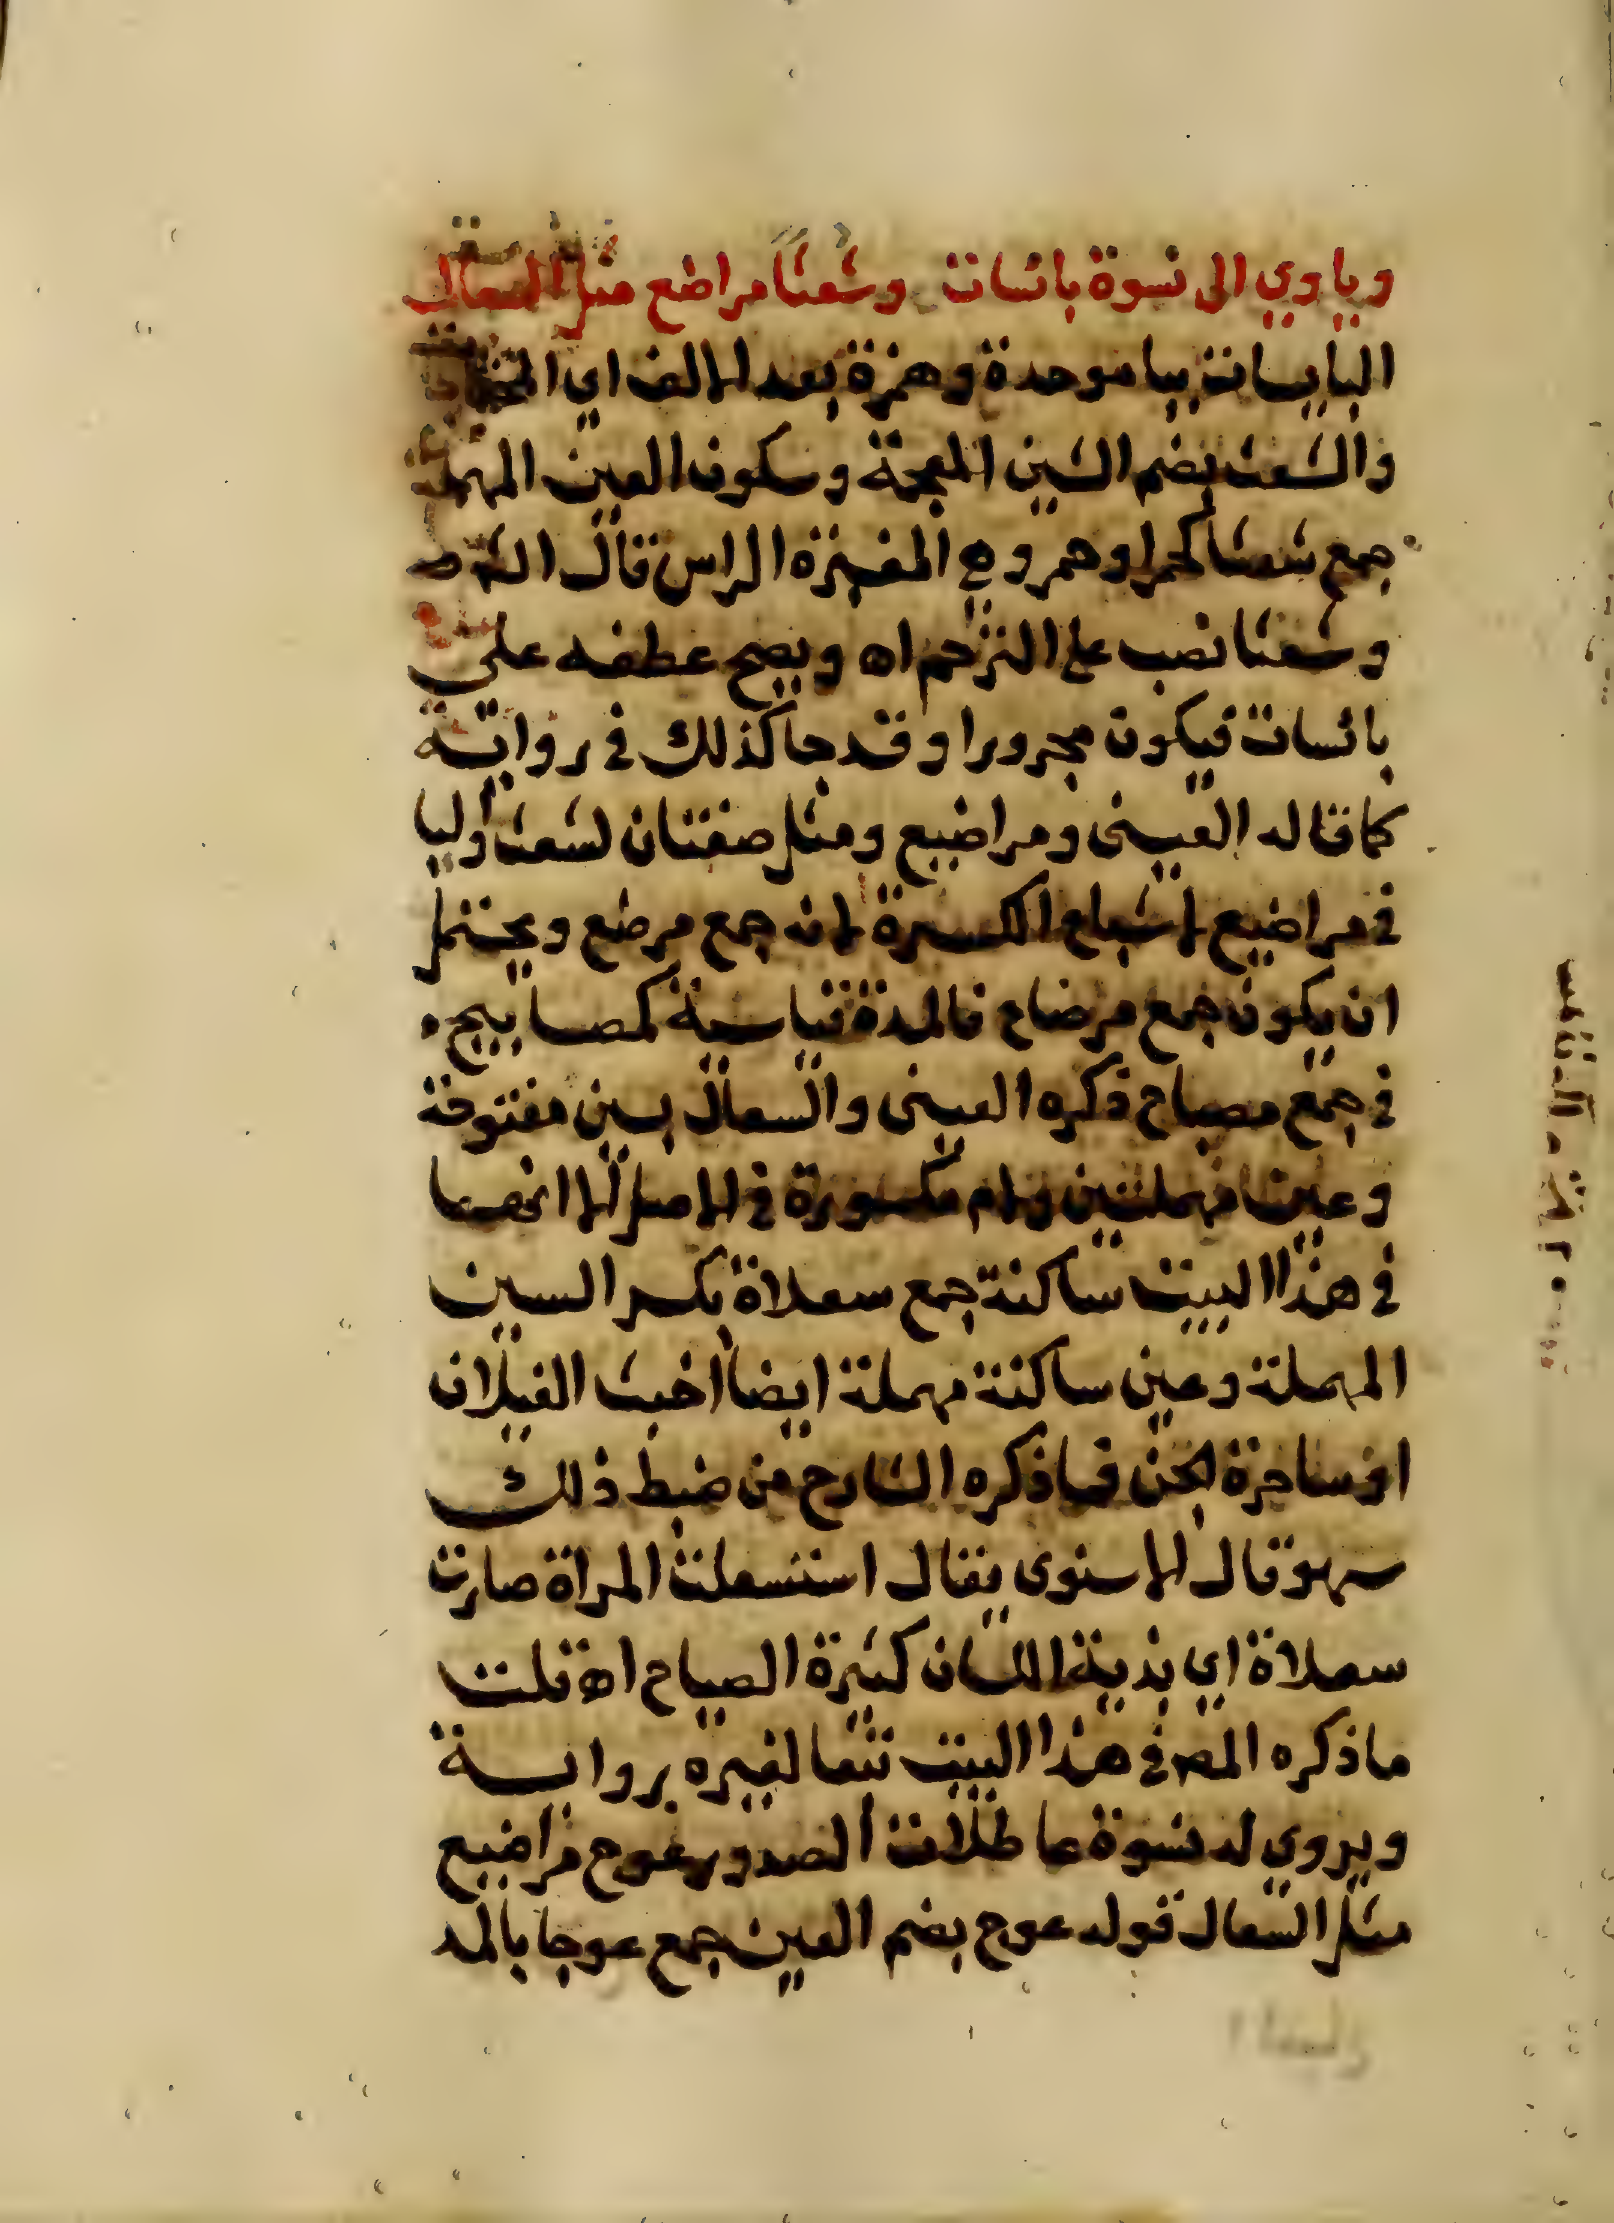 وياوي الى نسوة بائسات وشعثا مراضع مثل السعال
البايسات ببا موحدة وهمزة بعد الالف اي
والشعث بضم الشين المعجمة وسكون العين المهملة
جمع شعثا كحمرا وحمر وهي المغبرة الراس قال
وشعثا نصب على الترحم اه ويصح عطفه علي
بائسات فيكون مجرورا وقد جا كذلك في رواية
كما قاله العينى ومراضيع ومثل صفتان لشعث واليا
في مراضيع لاشباع الكسرة لانه جمع مرضع ويحتمل
ان يكون جمع مرضاع فالمدة قياسية كمصابيح
في جمع مصباح ذكره العينى والسعال بسين مفتوحة
وعين مهملتين ولام مكسورة في الاصل الا انها
في هذا البيت ساكنة جمع سعلاة بكسر السين
المهملة وعين ساكنة مهملة ايضا اخبث الغيلان
او ساحرة الجن فما ذكره الشارح من ضبط ذلك
سهو قال الاسنوى يقال استسعلت المراة صارت
سعلاة اي بذية اللسان كثيرة الصياح اه قلت
ما ذكره المص في هذا البيت تبعا لغيره برواية
ويروي له نسوة عاطلات الصدور عوج مراضيع
مثل السعال قوله عوج بضم العين جمع عوجا بالمد